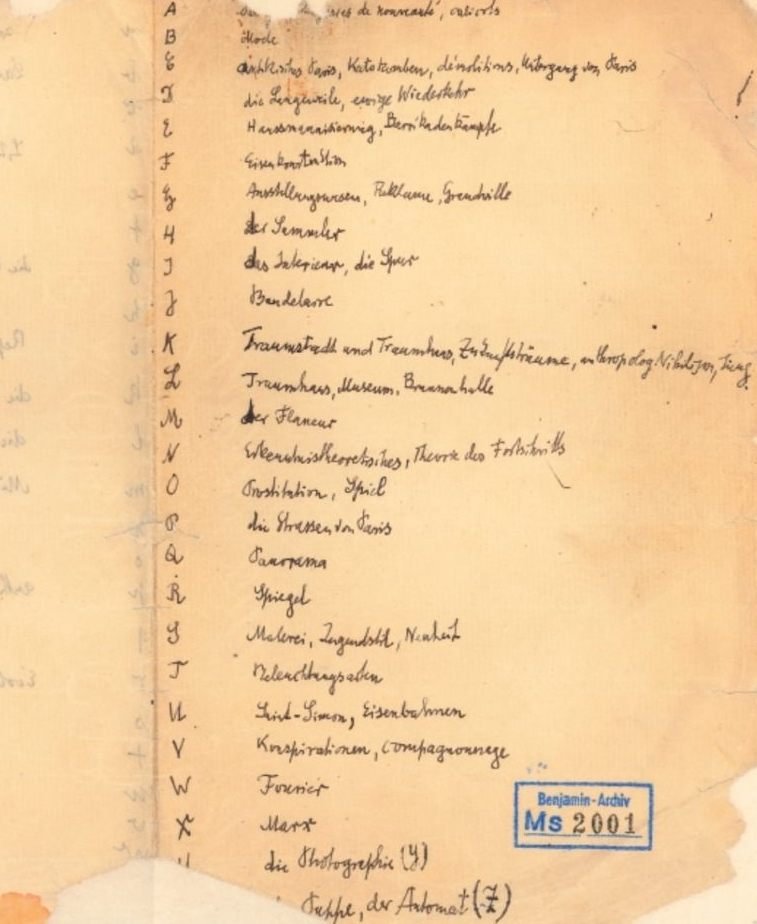 A de nouveauté, calicots
B Mode
C antikisches Paris, Katakomben, démolitions, Untergang von Paris
D die Langeweile, ewige Wiederkehr
E Haussmannisierung, Barrikadenkämpfe
F Eisenkonstruktion
G Ausstellungswesen, Reklame, Grandville
H der Sammler
I das Interieur, die Spur
J Baudelaire
K Traumstadt und Traumhaus, Zukunftsträume, anthropolog. Jung
L Traumhaus, Museum, Brunnenhalle
M der Flaneur
N Erkenntnistheoretisches, Theorie des Fortschritts
O Prostitution, Spiel
P die Strassen von Paris
Q Panorama
R Spiegel
S Malerei, Jugendstil, Neuheit
T Beleuchtungsarten
U Saint-Simon, Eisenbahnen
V Konspirationen, compagnonnage
W Fourier
X Marx
die Photographie (Y)
Puppe, der Automat (Z)
Benjamin-Archiv
Ms 2001